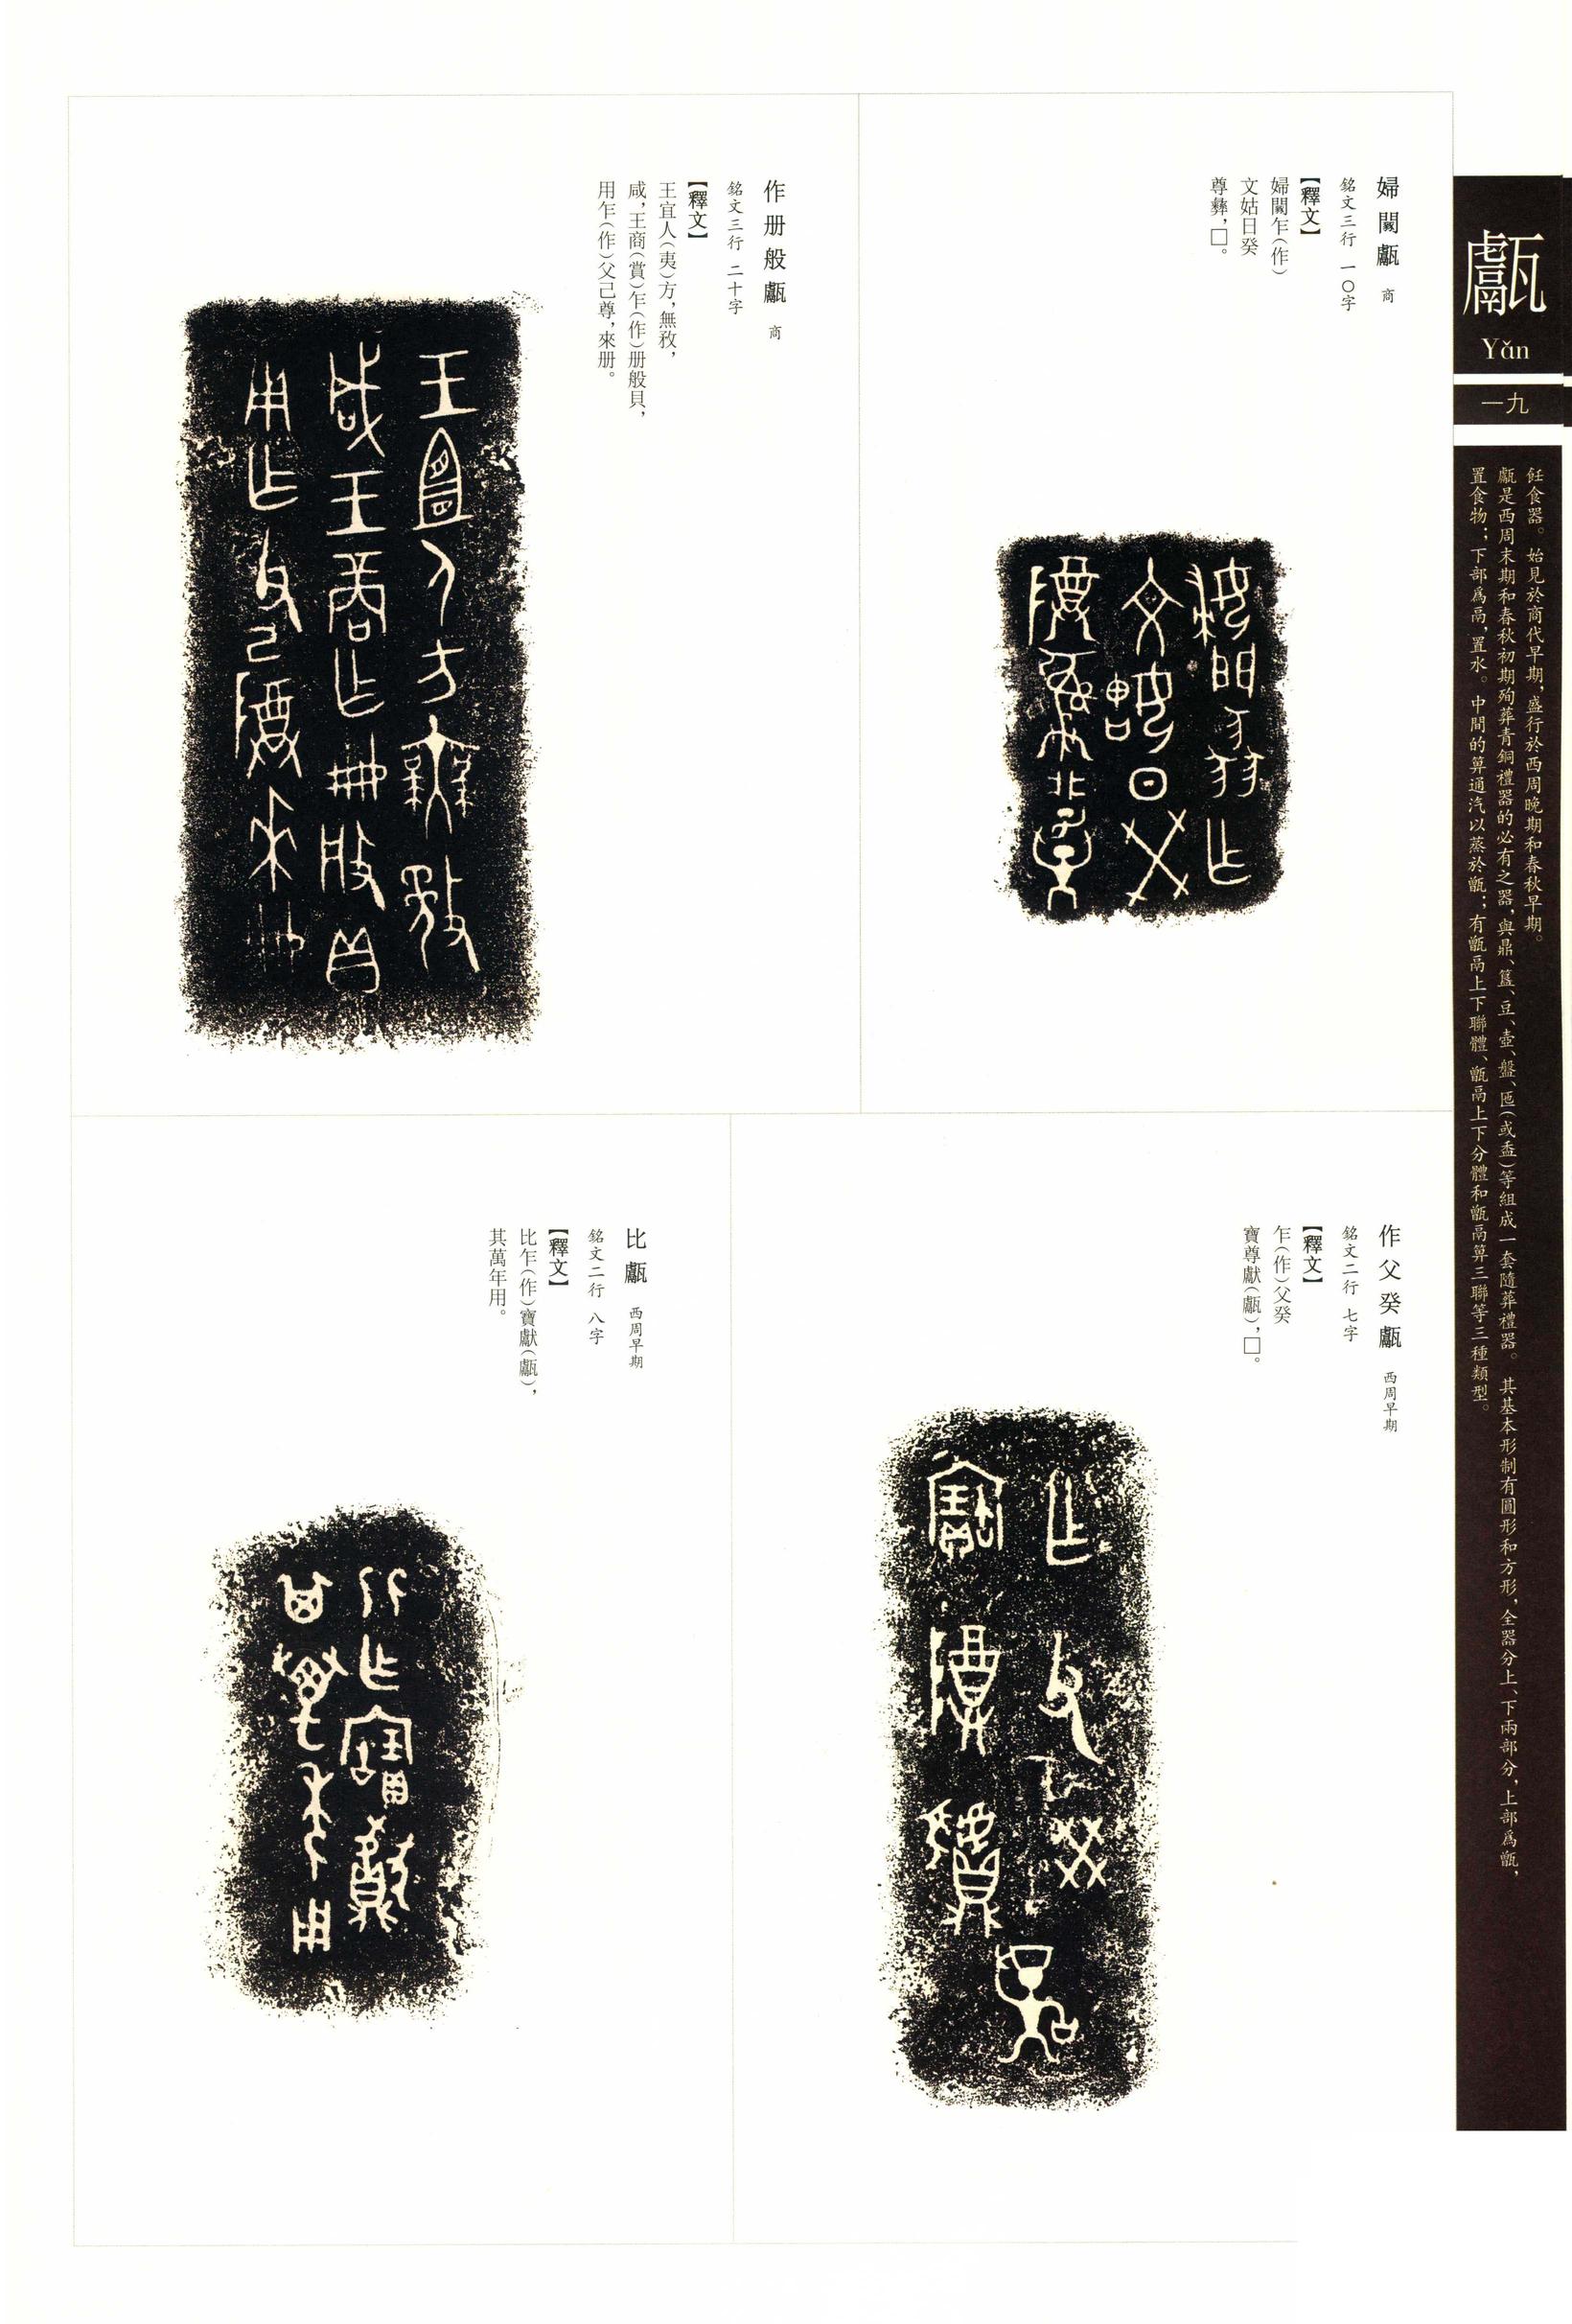 甗
Yǎn
一九
飪食器。始見於商代早期，盛行於西周晚期和春秋早期。
甗是西周末期和春秋初期殉葬青銅禮器的必有之器，與鼎、簋、豆、壺、盤、匜（或盉）等組成一套隨葬禮器。其基本形制有圓形和方形，全器分上、下兩部分，上部爲甑，
置食物；下部爲鬲，置水。中間的箅通汽以蒸於甑；有甑鬲上下聯體、甑鬲上下分體和甑鬲箅三聯等三種類型。
婦闑甗 商
銘文三行 一〇字
【釋文】
婦闑乍（作）
文姑日癸
尊彝，□。
作册般甗 商
銘文三行 二十字
【釋文】
王宜人（夷）方，無敄，
咸，王商（賞）乍（作）册般貝，
用乍（作）父己尊，來册。
作父癸甗 西周早期
銘文二行 七字
【釋文】
乍（作）父癸
寶尊獻（甗），□。
比甗 西周早期
銘文二行 八字
【釋文】
比乍（作）寶獻（甗），
其萬年用。